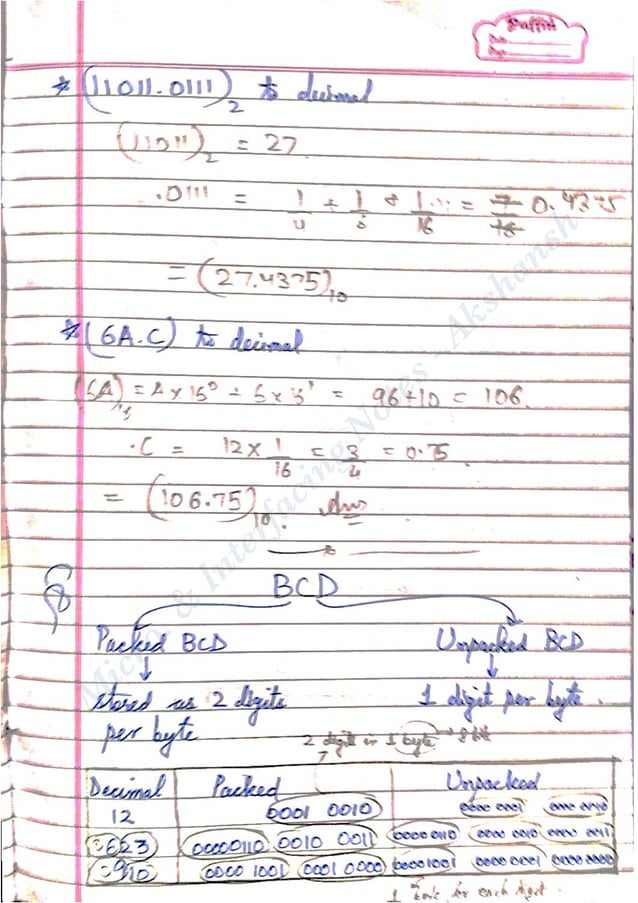 Puffin
Date
Page
* (11011.0111)₂ to decimal
(11011)₂ = 27
.0111 = 1/4 + 1/8 + 1/16 = 7/16 0.4375
= (27.4375)₁₀
* (6A.C) to decimal
(6A)₁₆ = A × 16⁰ + 6 × 16¹ = 96+10 = 106.
.C = 12 × 1/16 = 3/4 = 0.75
= (106.75)₁₀. Ans
BCD
Packed BCD Unpacked BCD
stored as 2 digits 1 digit per byte.
per byte
2 digit in 1 byte → 8 bit
Decimal Packed Unpacked
12 0001 0010 0000 0001 0000 0010
623 00000110 0010 0011 00000110 0000 0010 0000 0011
910 0000 1001 0001 0000 00001001 0000 0001 0000 0000
1 byte for each digit.
Micro. & Interfacing Notes - Akshansh